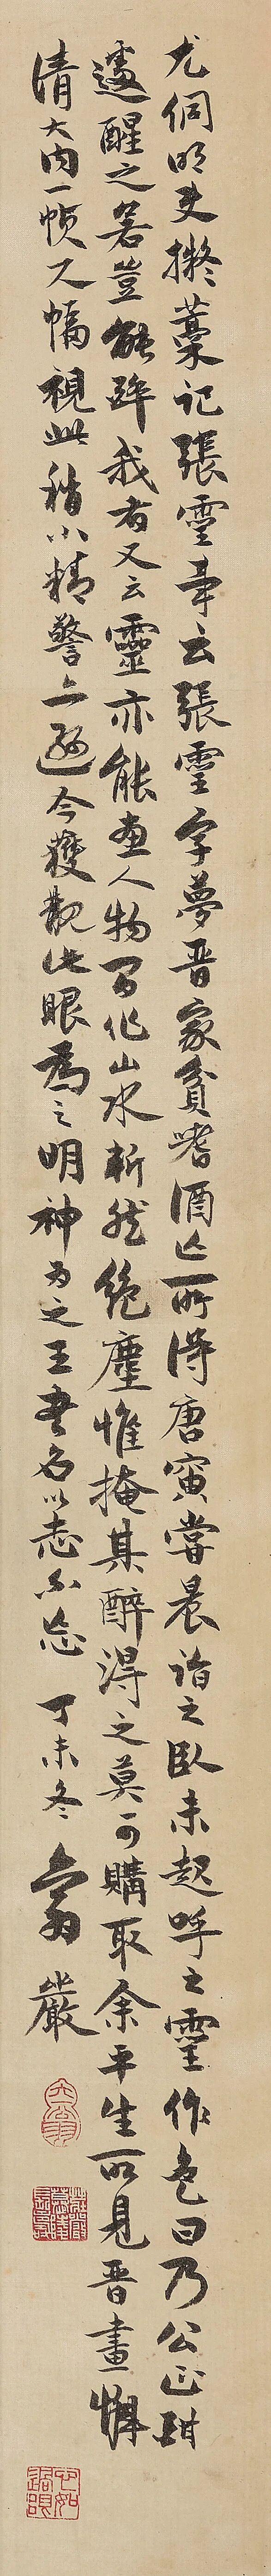 尤侗明史擬藁記張靈事云張靈字夢晉家貧嗜酒亡所得唐寅嘗晨詣之臥未起呼之靈作色曰乃公正酣
遽醒之若豈能醉我者又云靈亦能畫人物間作山水斬然絕塵惟掩其醉得之莫可購取余平生所見晉畫惟
清大內一幀尺幅視此稍小精警上過今獲觀此眼為之明神為之王書名以志不忘 丁未冬 翁 嚴